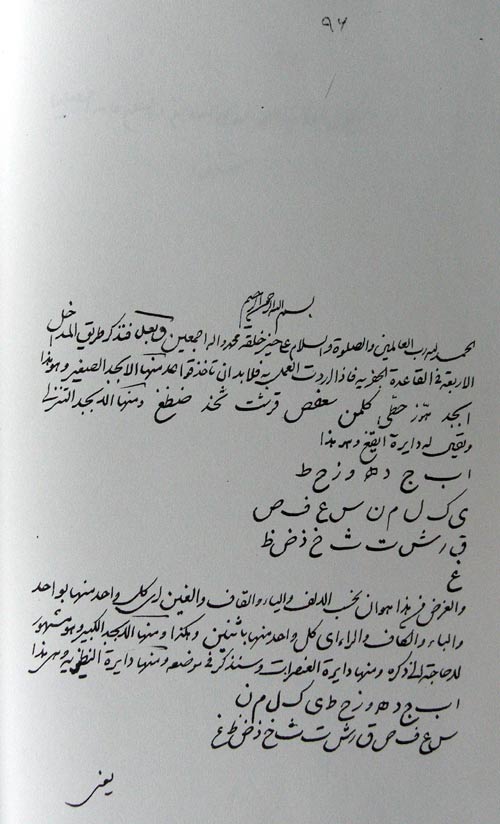 ٩٦
بسم الله الرحمن الرحیم
الحمد لله رب العالمین والصلوة والسلام علی خیر خلقه محمد واله اجمعین وبعد فنذکر طریق المداخل
الاربعة فی القاعدة الجفریة فاذا اردت العمل به فلابد ان تاخذ قواعد منها الابجد الصغیر وهو هذا
ابجد هوز حطی کلمن سعفص قرشت ثخذ ضظغ ومنها الابجد
ویقال له دایرة ایقغ وهو هذا
ا ب ج د ه و ز ح ط
ی ک ل م ن س ع ف ص
ق ر ش ت ث خ ذ ض ظ
غ
والغرض فی هذا هو ان یحسب الالف والیاء والقاف والغین ای کل واحد منها بواحد
والباء والکاف والراء ای کل واحد منها باثنین وهکذا ومنها الابجد الکبیر وهو مشهور
لا حاجة الی ذکره ومنها دایرة العنصریات وسنذکر فی موضعه ومنها دایرة النظیریة وهی هذا
ا ب ج د ه و ز ح ط ی ک ل م ن
س ع ف ص ق ر ش ت ث خ ذ ض ظ غ
یعنی